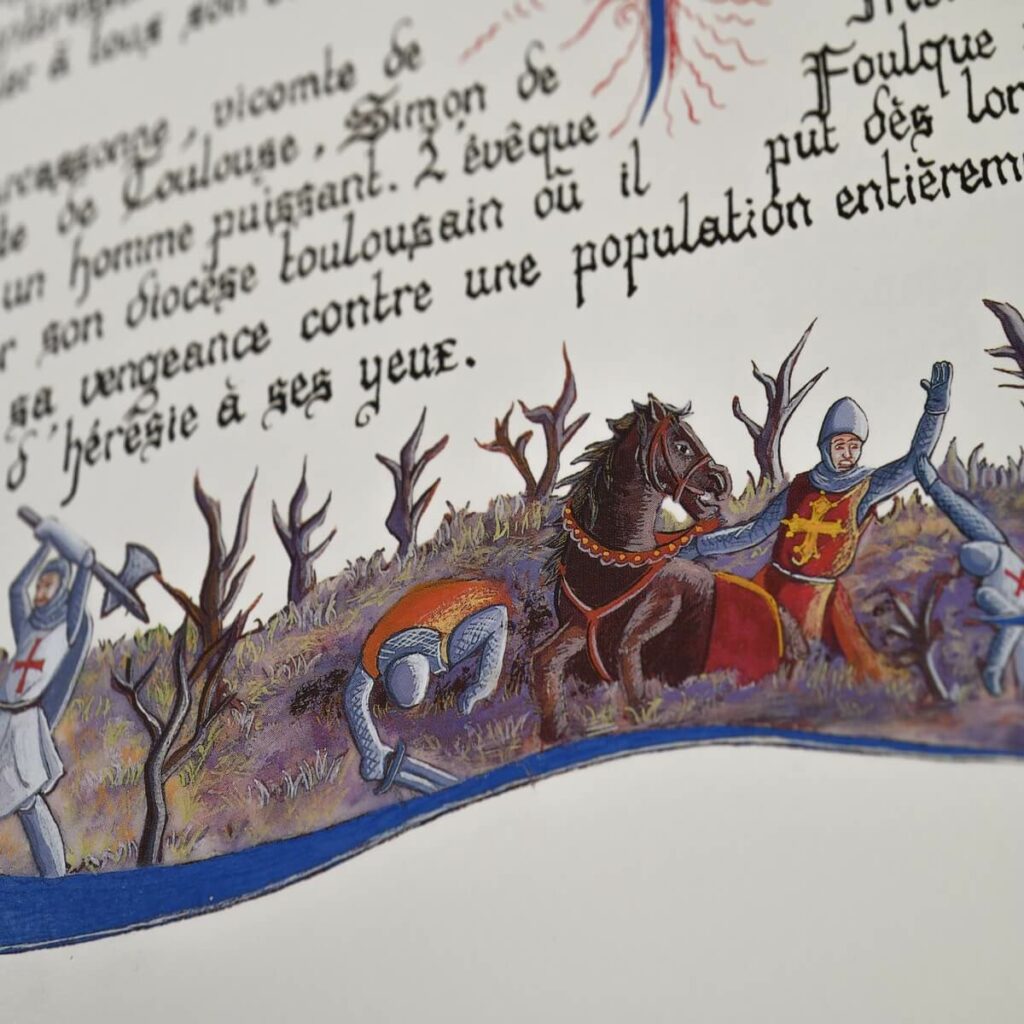 à tous son
rcassonne, vicomte de
te de Toulouse, Simon de
un homme puissant. L'évêque Foulque
r son diocèse toulousain où il put dès lor
sa vengeance contre une population entièrem
d'hérésie à ses yeux.